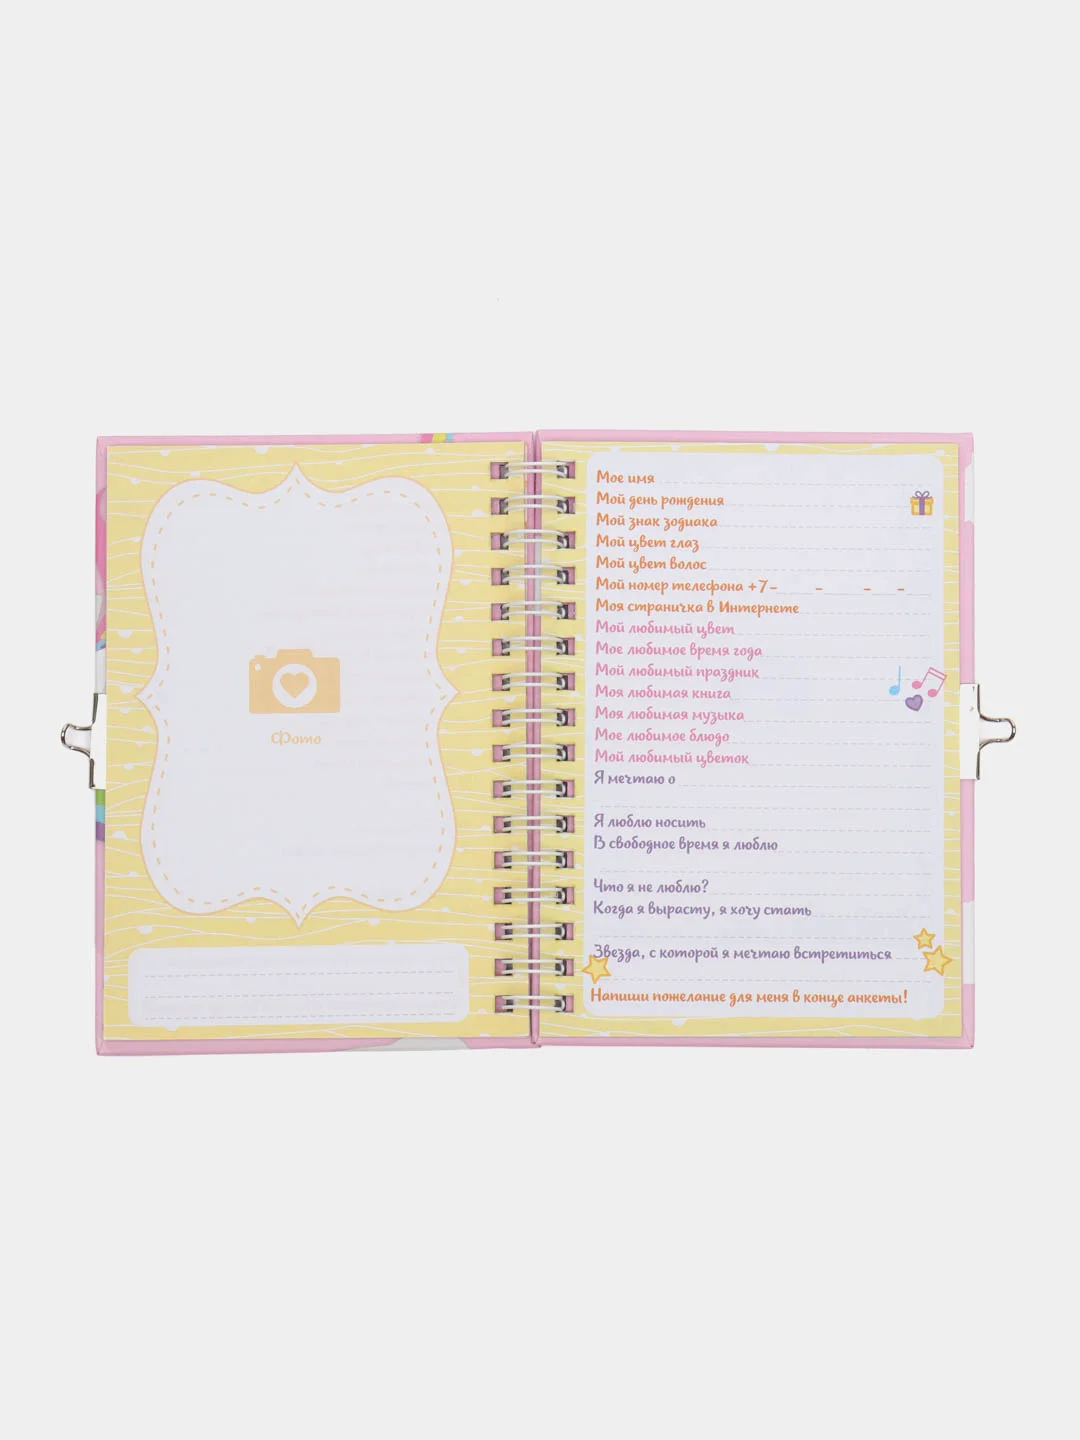 Фото
Мое имя
Мой день рождения
Мой знак зодиака
Мой цвет глаз
Мой цвет волос
Мой номер телефона +7- - - -
Моя страничка в Интернете
Мой любимый цвет
Мое любимое время года
Мой любимый праздник
Моя любимая книга
Моя любимая музыка
Мое любимое блюдо
Мой любимый цветок
Я мечтаю о
Я люблю носить
В свободное время я люблю
Что я не люблю?
Когда я вырасту, я хочу стать
Звезда, с которой я мечтаю встретиться
Напиши пожелание для меня в конце анкеты!